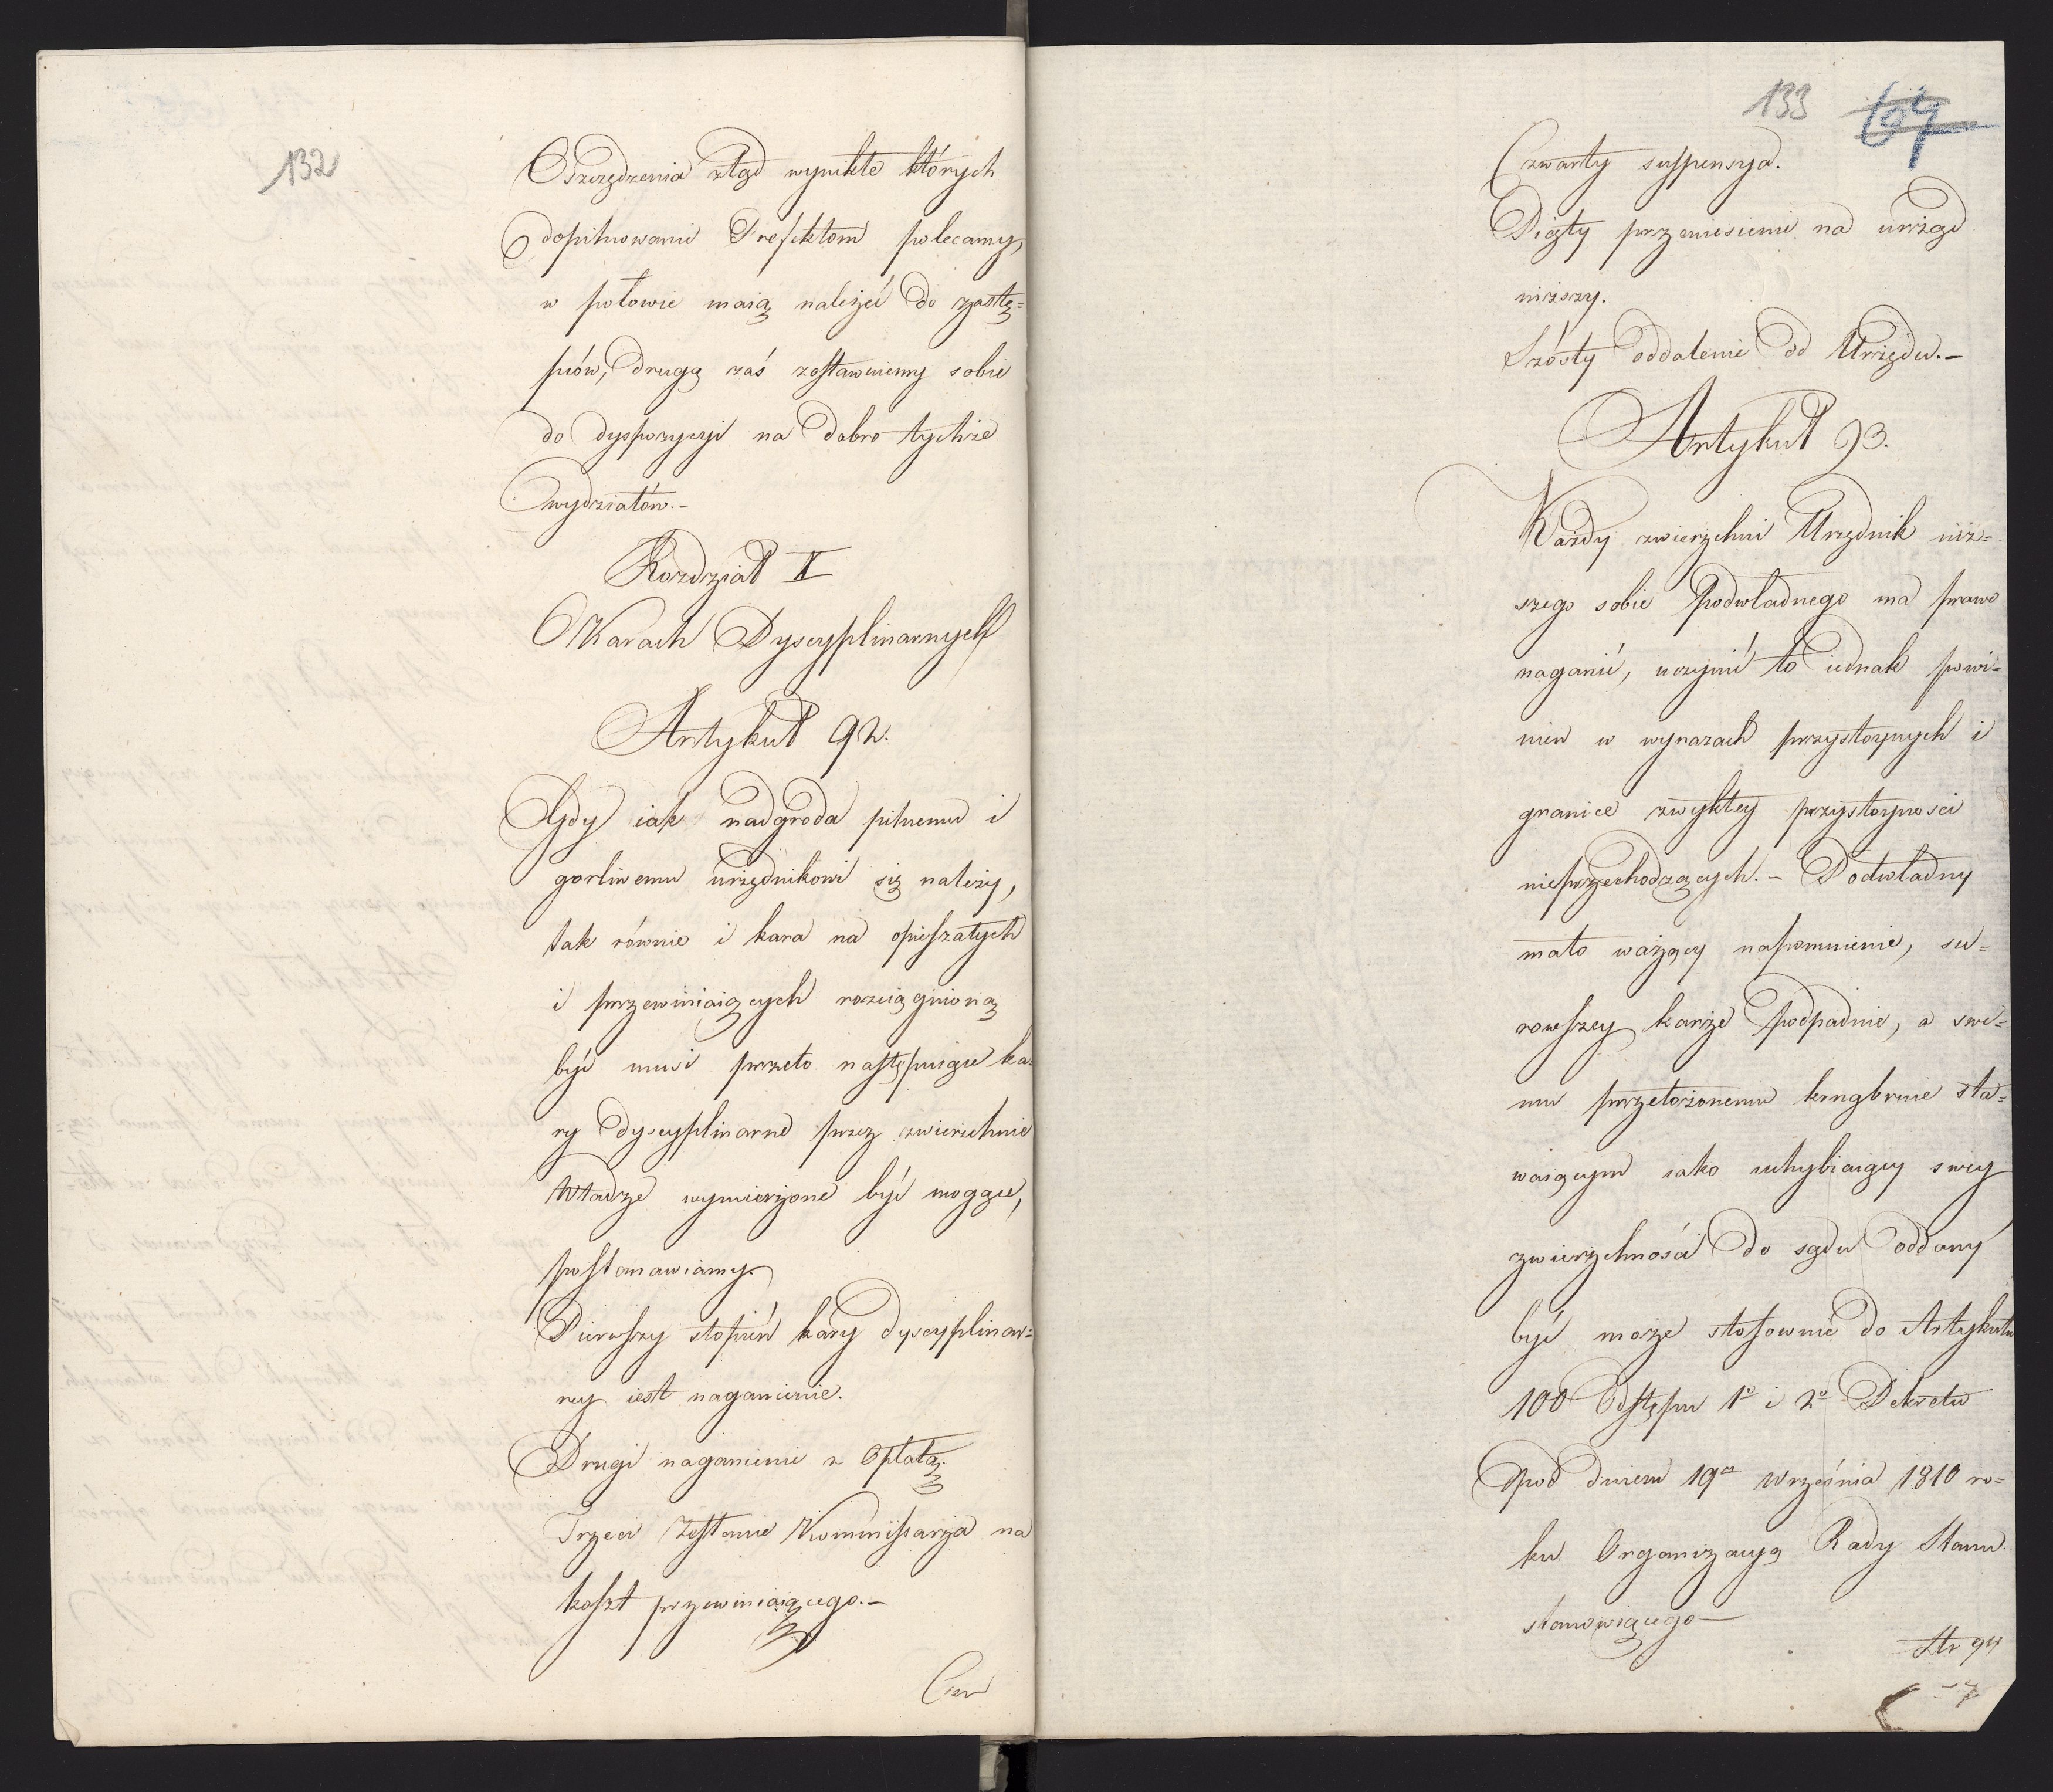 132
Oszczędzenia ztąd wynikłe których
dopilnowanie Prefektom polecamy,
w połowie maią należeć do zastę=
pców, drugą zaś zostawuiemy sobie
do dyspozycyi na dobro tychże
wydziałów.-
Rozdział X
O Karach Dyscyplinarnych
Artykuł 92.
Gdy iak nadgroda pilnemu i
gorliwemu urzędnikowi się należy,
tak równie i kara na opieszałych
i przewiniaiących rozciągnioną
być musi przeto następuiące ka=
ry dyscyplinarne przez zwierzchnie
Władze wymierzone być mogące,
postanawiamy.
Pierwszy stopień kary dyscyplinar=
ney iest naganienie.
Drugi naganienie z opłatą.
Trzeci Zesłanie Kommissarza na
koszt przewiniaiącego.-
Czw
133 64
Czwarty suspensya.
Piąty przeniesienie na urząd
niższy.
Szósty oddalenie od Urzędu.-
Artykuł 93.
Każdy zwierzchni Urzędnik niż=
szego sobie Podwładnego ma prawo
naganić, uczynić to iednak powi=
nien w wyrazach przystoynych i
granice zwykłey przystoyności
nieprzechodzących.- Podwładny
mało ważący napomnienie, su=
rowszey karze podpadnie, a swe=
mu przełożonemu krnąbrnie sta=
waiącym iako uchybiaiący swey
zwierzchności do sądu oddany
być może stosownie do Artykułu
100 Odstępu 1º i 2º Dekretu
pod dniem 19º Września 1810 ro=
ku Organizacyą Rady Stanu
stanowiącego-
Ar 94